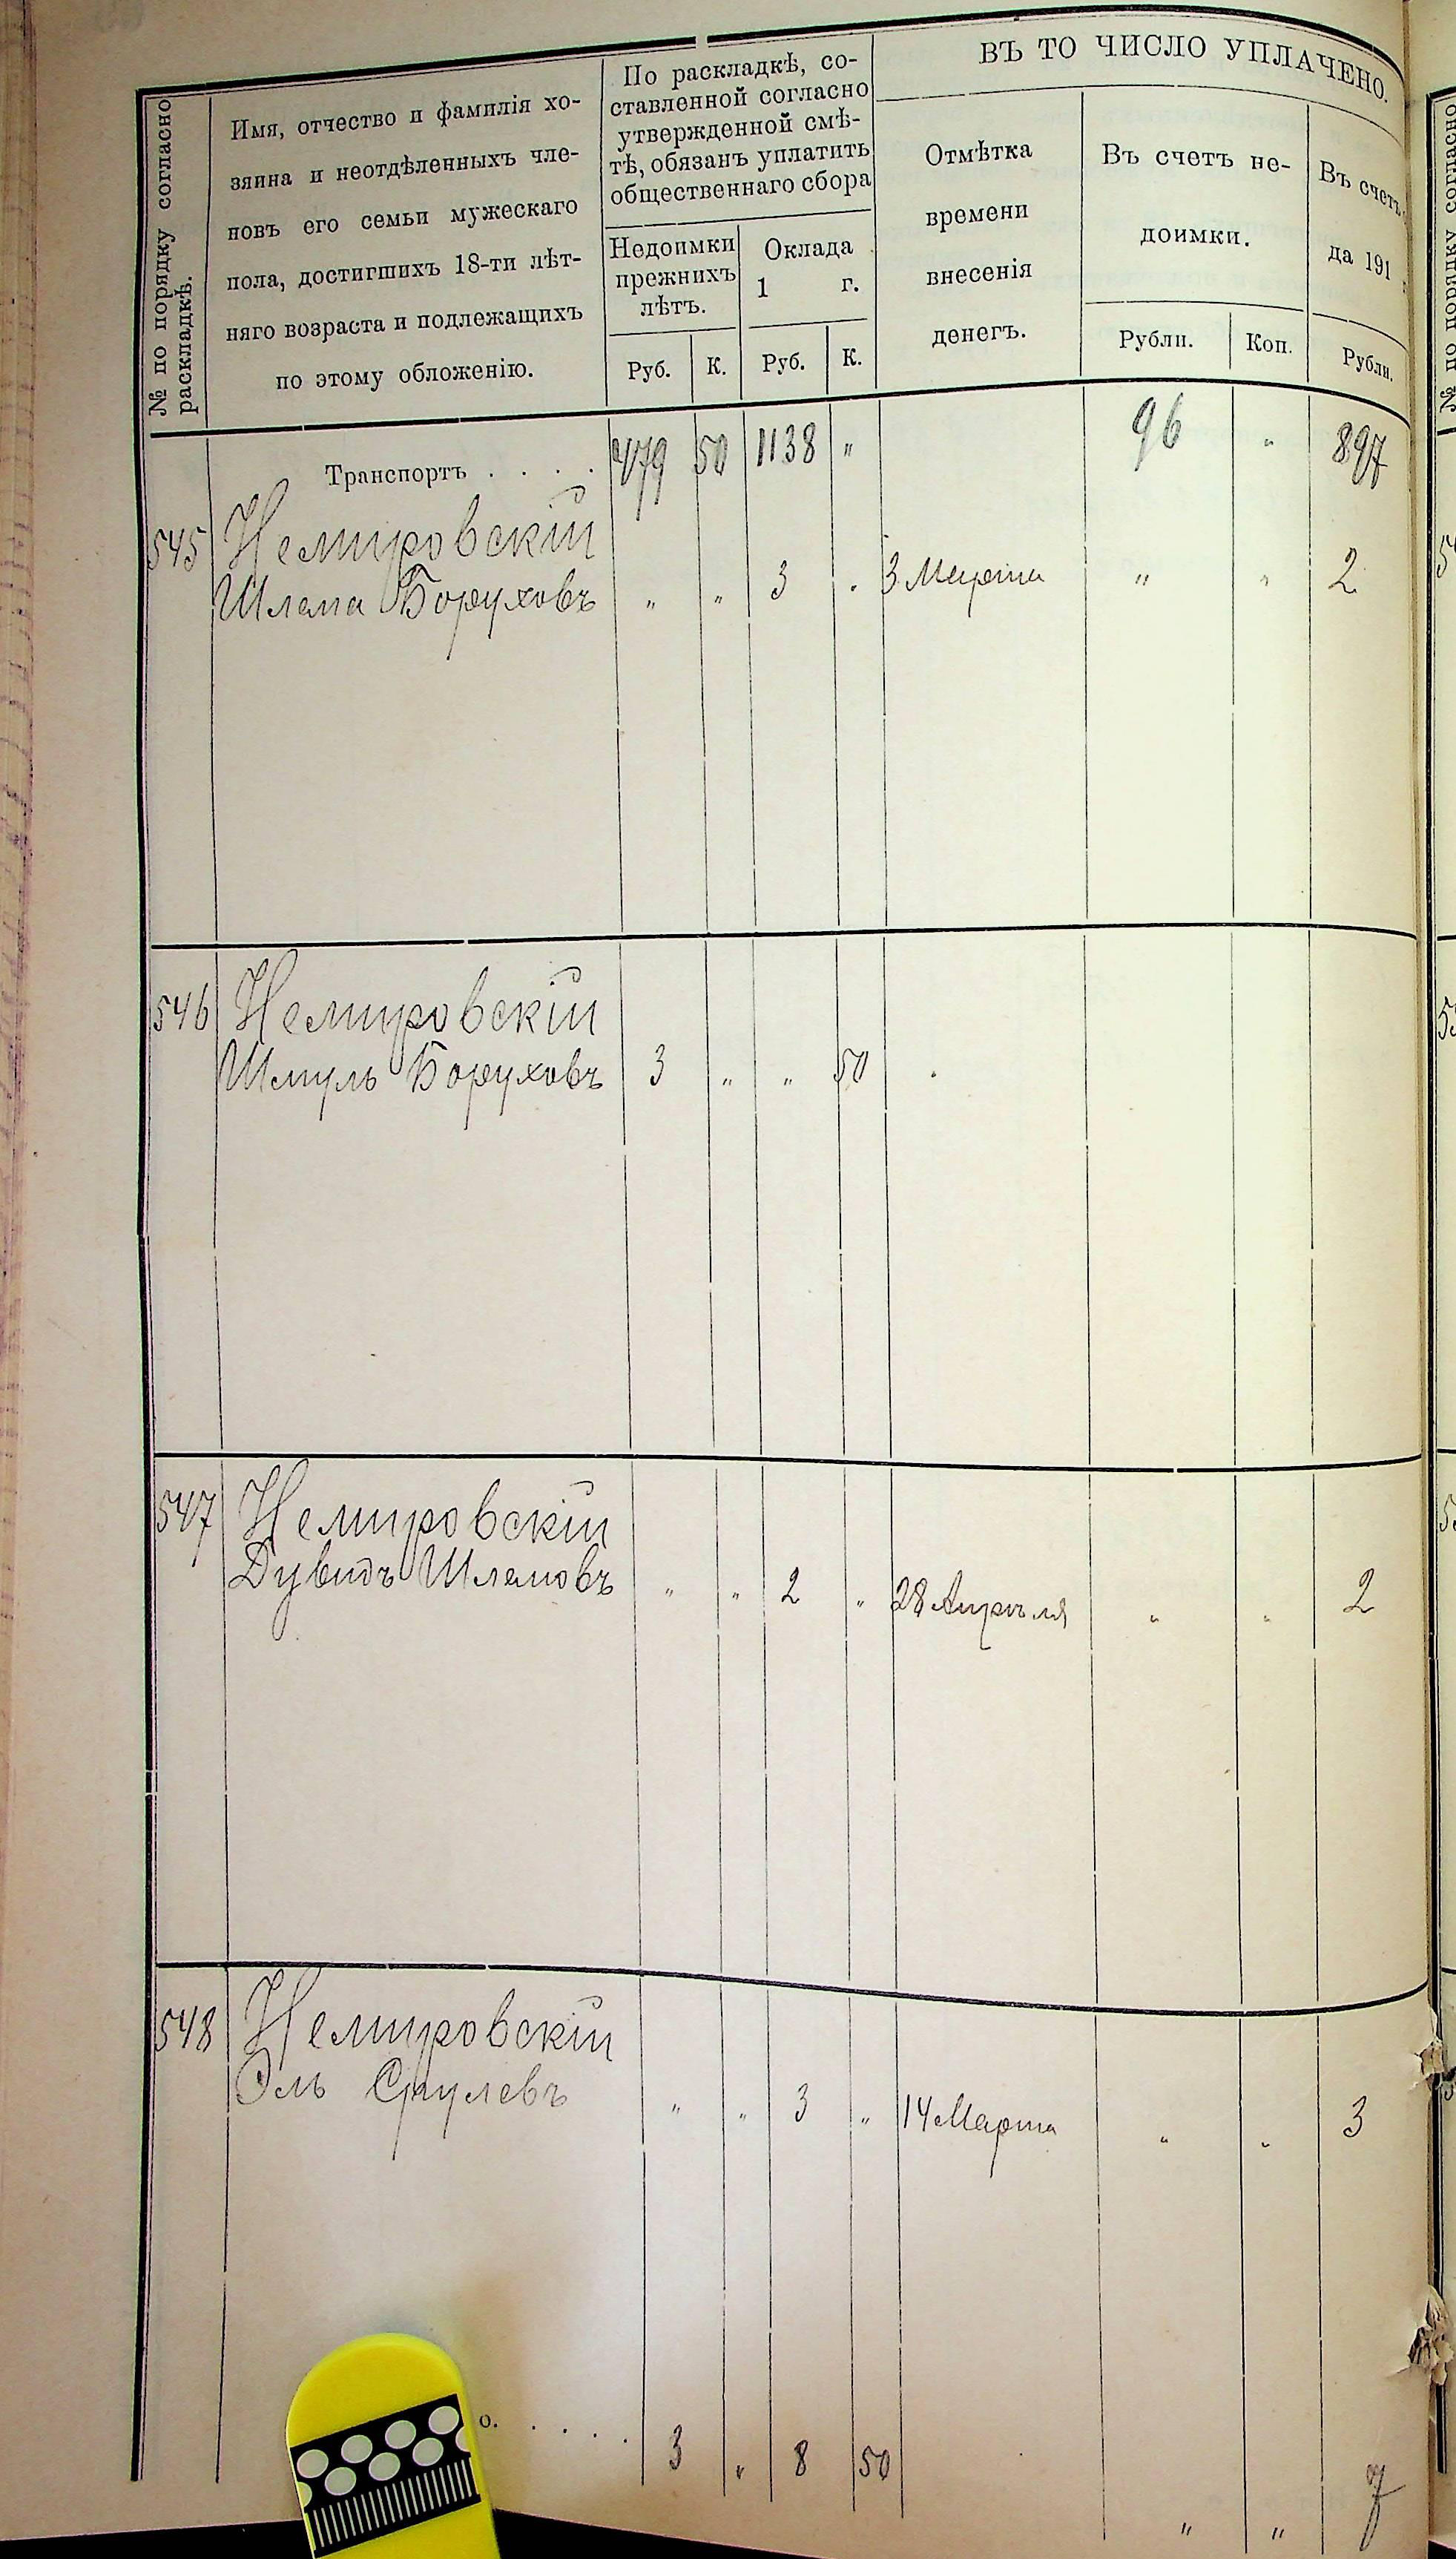 ВЪ ТО ЧИСЛО УПЛАЧЕНО.
№ по порядку согласно
раскладкѣ.
Имя, отчество и фамилія хо-
зяина и неотдѣленныхъ чле-
новъ его семьи мужескаго
пола, достигшихъ 18-ти лѣт-
няго возраста и подлежащихъ
по этому обложенію.
По раскладкѣ, со-
ставленной согласно
утвержденной смѣ-
тѣ, обязанъ уплатить
общественнаго сбора
Недоимки
прежнихъ
лѣтъ.
Оклада
1 г.
Руб. К. Руб. К.
Отмѣтка
времени
внесенія
денегъ.
Въ счетъ не-
доимки.
Рубли. Коп.
Въ счетъ
да 191
Рубли.
Транспортъ . . . . 479 50 1138 „ 96 „ 897
545 Немировскій
Шлема Боруховъ „ „ 3 „ 3 Марта „ „ 2
546 Немировскій
Шмуль Боруховъ 3 „ „ 50
547 Немировскій
Дувидъ Шлемовъ „ „ 2 „ 28 Апрѣля „ „ 2
548 Немировскій
Эль Срулевъ „ „ 3 „ 14 Марта „ „ 3
о. . . . . 3 „ 8 50 „ „ 7
№ по порядку согласно